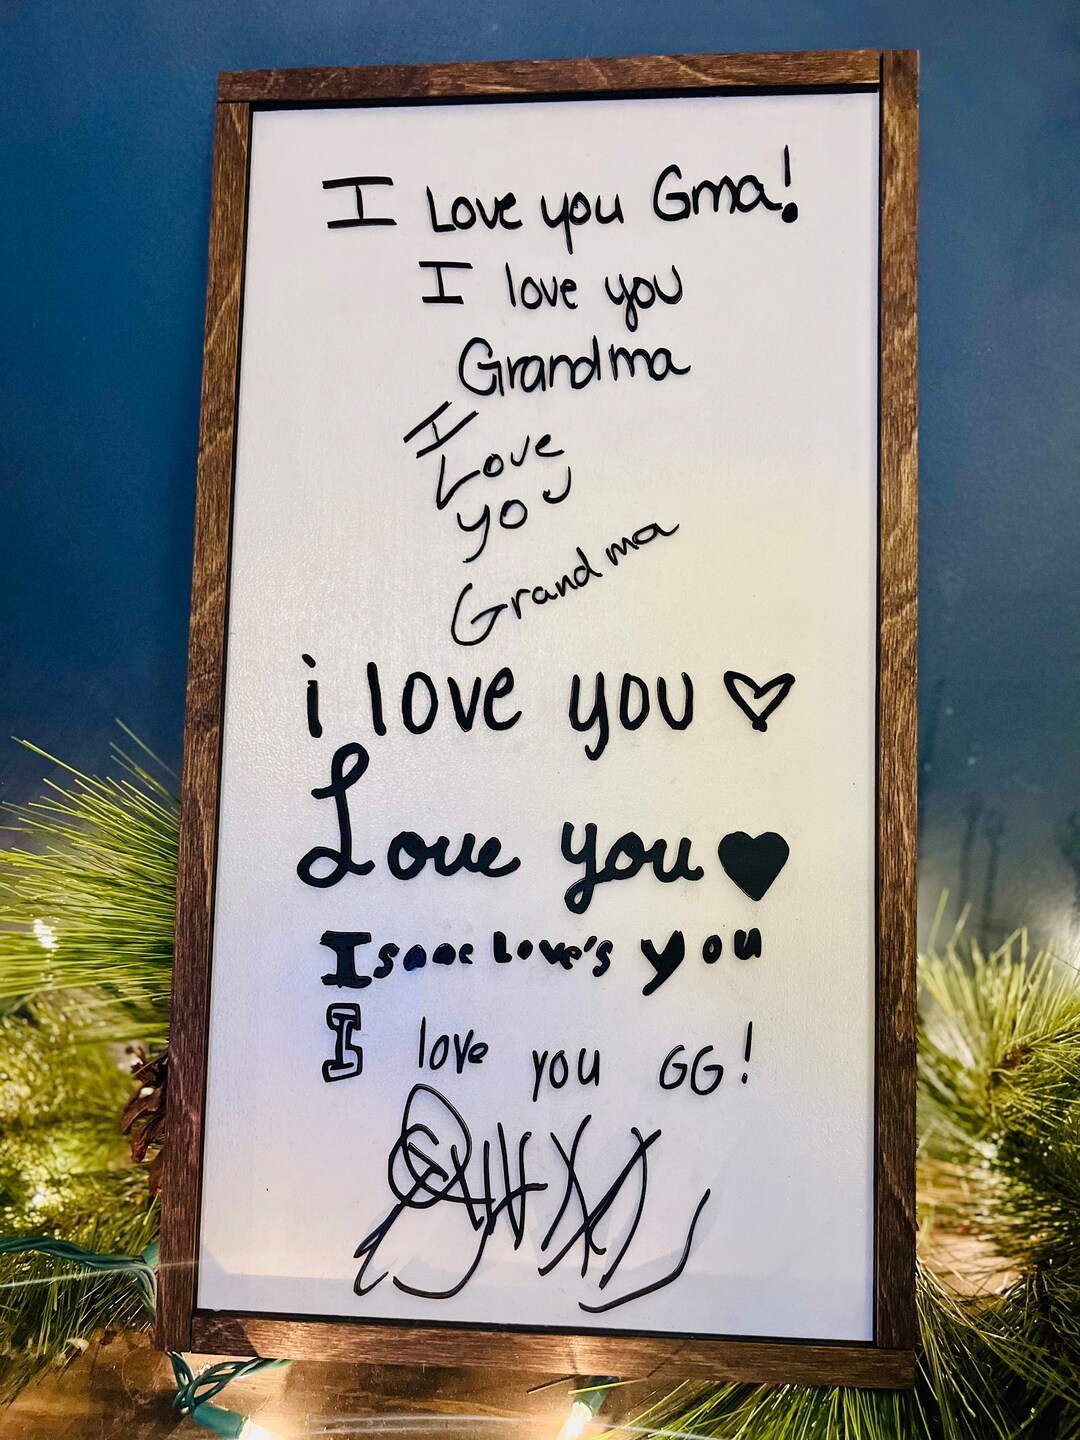 I Love you Gma!
I love you
Grandma
I
Love
you
Grandma
i love you
Love you
Isaac Love's you
I love you GG!